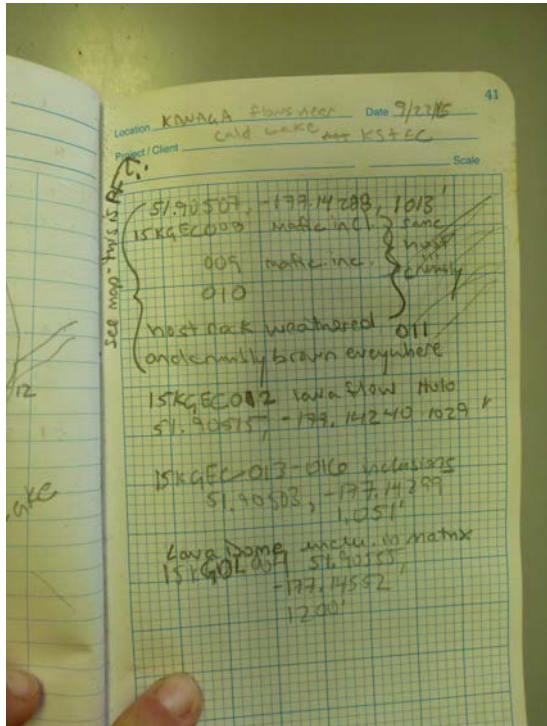 41
Location KANAGA flows near Date 9/22/15
cald lake
Project / Client
Scale
see map - this is
51.90507, -177.14288, 1013'
15KGEC008 mafic incl. same
009 mafic. inc. host
010 crumbly
host rock weathered 011
and crumbly brown everywhere
15KGEC012 lava flow
51.90515, -177.14240 1029'
15KGEC013-016 inclusions
51.90503, -177.14299
1,051'
Lava Dome inclu. in matrix
51.90555,
-177.14552
1200'
12
ake